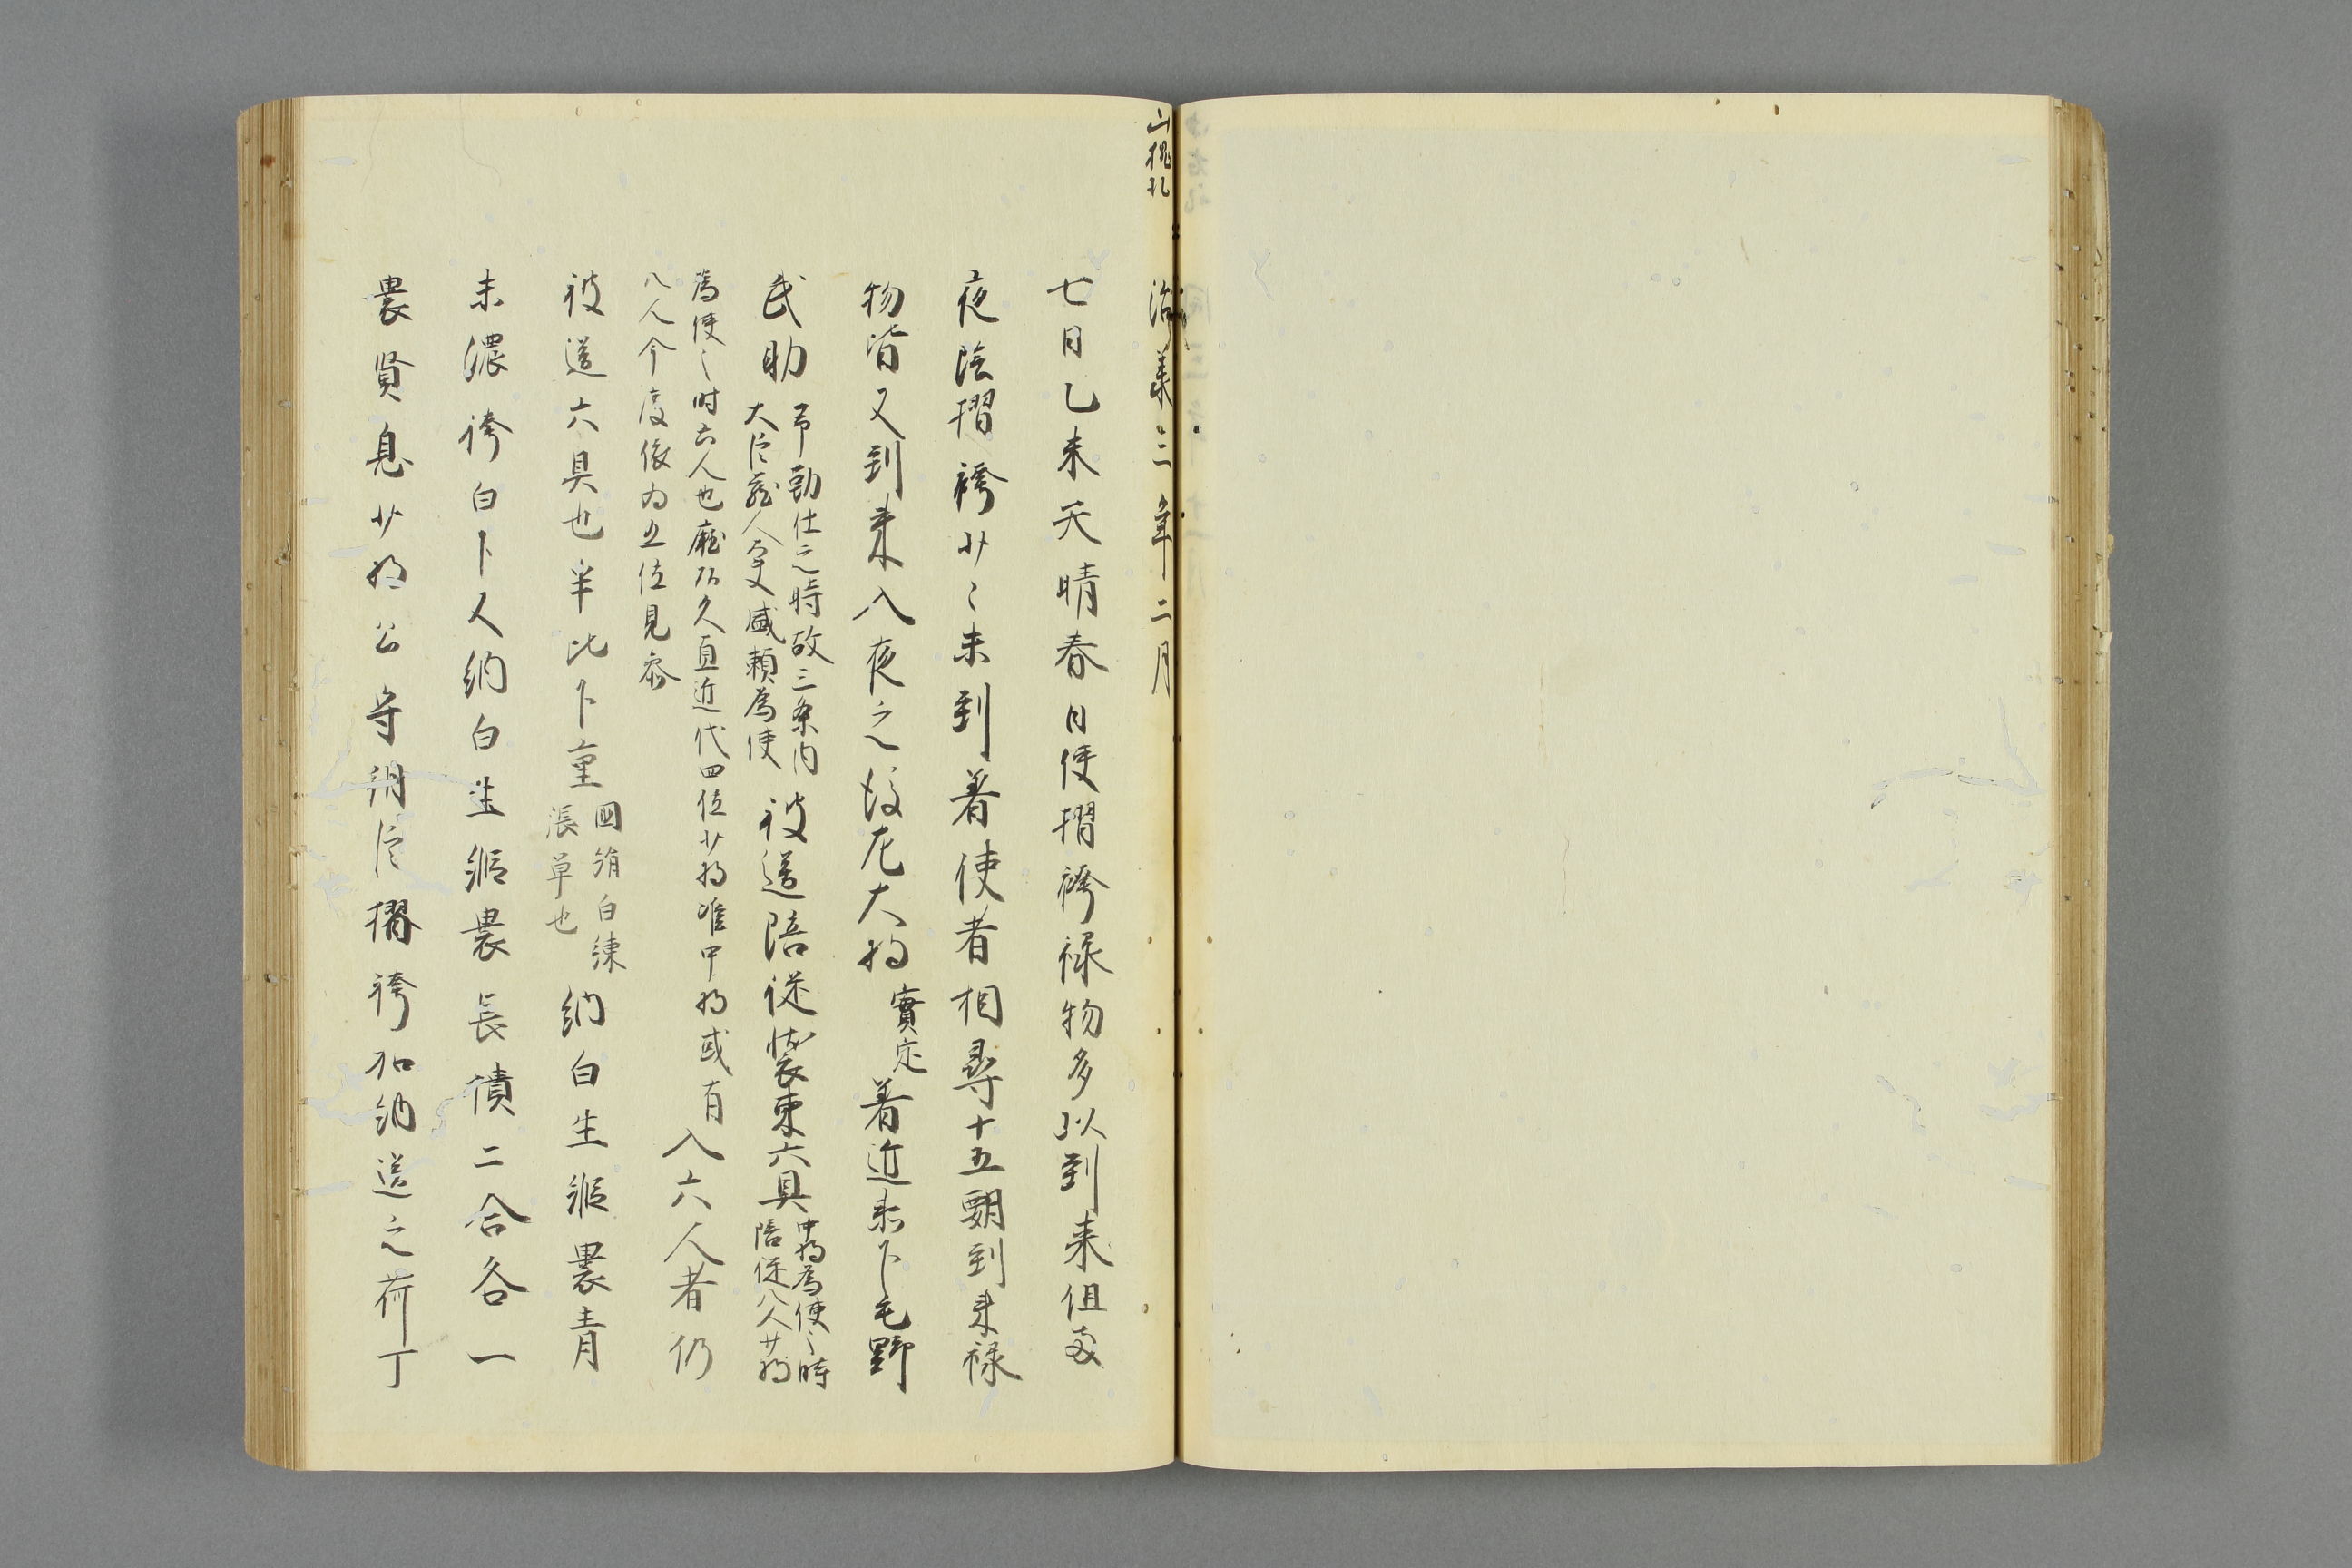 山槐記
治承三年二月
七日乙未天晴春日使摺袴禄物多以到来但及
夜陰摺袴少々未到着使者相尋十五腰到来禄
物皆又到来入夜之後左大将實定着近来下毛野
武助予勤仕之時故三条内大臣蔵人大夫盛頼為使被送陪従装束六具中将為使之時陪従八人少将
為使之時六人也廳頭久直近代四位少将准中将或有
八人今度依為五位見参入六人者仍
被送六具也半比下重國絹白練張単也納白生絹裏青
末濃袴白下人納白生絹裏長櫃二合各一
裏賢息少将公守朝臣摺袴加納送之荷丁